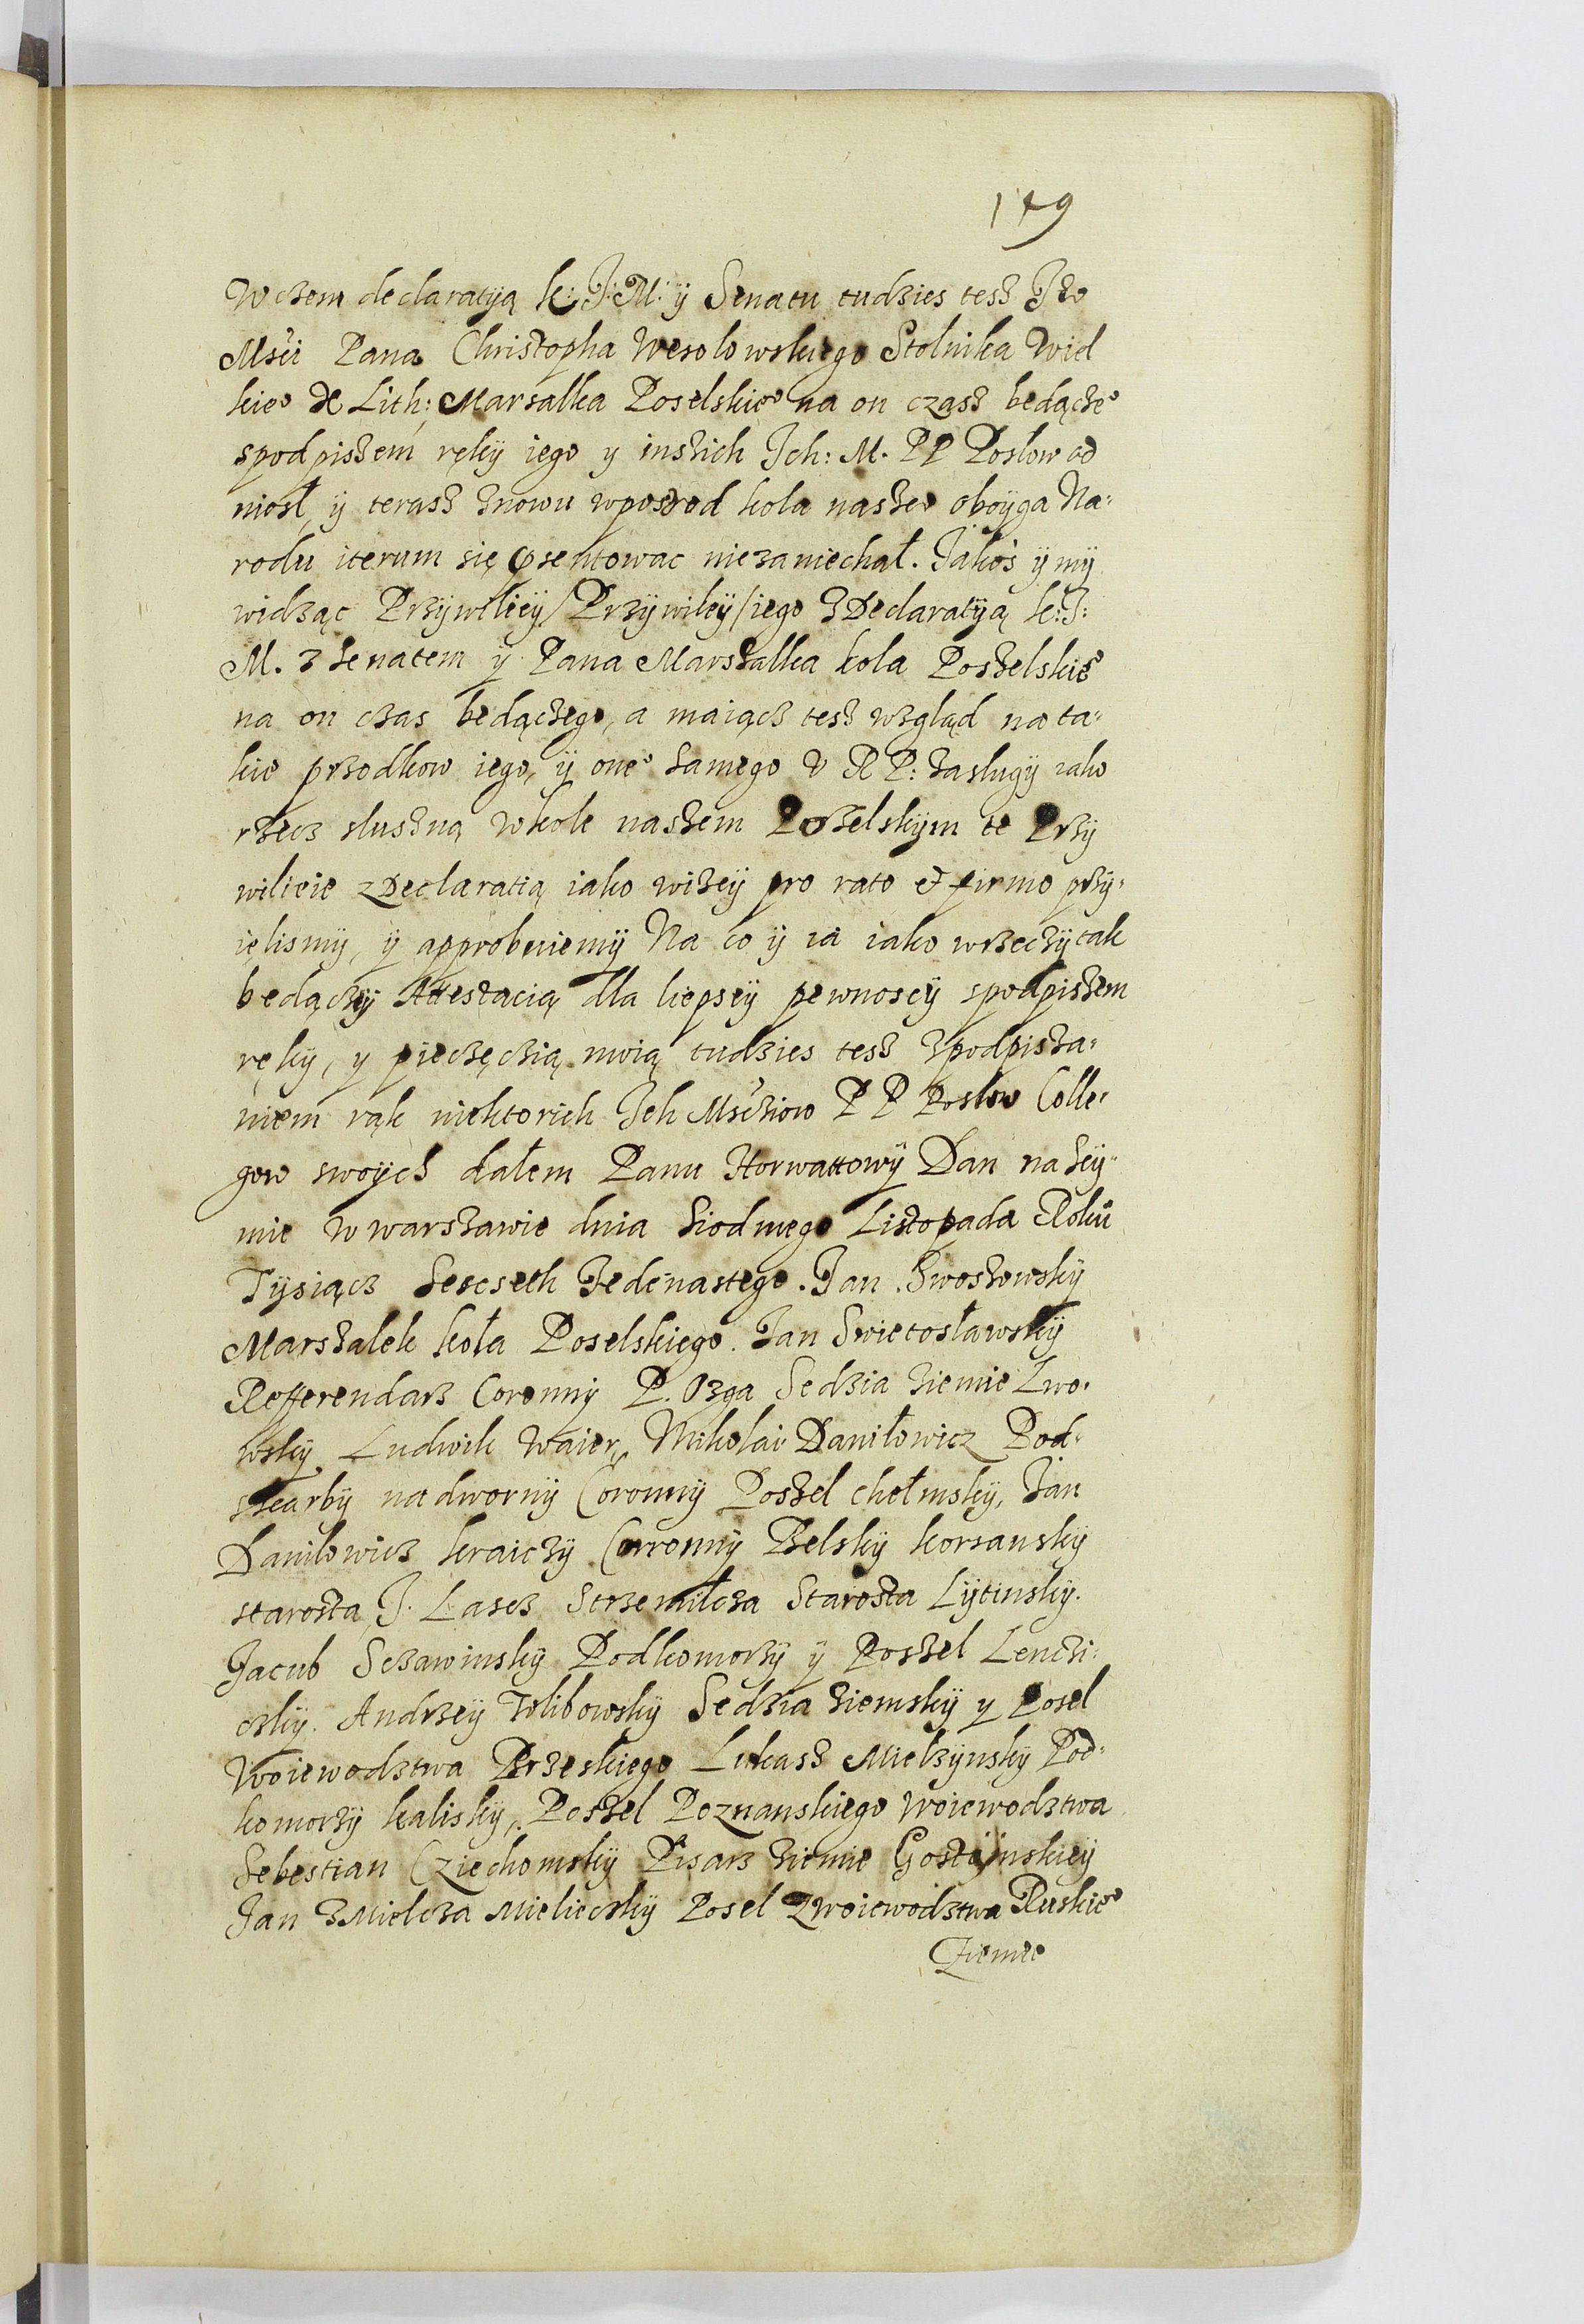 149
W czem declaratyą k: J: M: ÿ Senatu tudzies tesz Jeo
Mści Pana Christopha Wesolowskiego Stolnika Wiel
kieo X Lith: Marsalka Poselskieo na on czasz bedączeo
spodpiszem rękÿ iego y inszich Ich: M. PP Poslow od
niosł, ÿ terasz znowu wposrod kola naszeo oboÿga Na:
rodu iterum się psentowac niezaniechał. Jakoś ÿ mÿ
widząc Przÿwiliéÿ / Przÿwileÿ / iego z Declaratÿą k: J:
M. z Senatem ÿ Pana Marszalka kola Poszelskieo
na on czas bedączego, a maiącz tesz wzgląd na ta:
kie przodkow iego, ÿ oneo samego v R P: zaslugÿ iako
rzecz sluszną W kole naszem Poszelskÿm te Przÿ
wilieie z Declaratią iako wiszeÿ pro rato et firmo przÿ:
ięlismÿ, ÿ approbuiemÿ Na co ÿ ia iako wrzeczÿ tak
bedączÿ Attestacią dla liepseÿ pewnoscÿ spodpiszem
rękÿ, y pieczęczią moią tudzies tesz zpodpisza:
niem rąk niektorich Ich Mścziow P P Poslow Colle:
gow swoÿch dałem Panu Horwattowÿ Dan na Seÿ:
mie w warszawie dnia Siodmego Listopada Roku
Tÿsiącz Sescseth Jedenastego. Jan Swoszowskÿ
Marszalek koła Poselskiego. Jan Swietosławskÿ
Refferendarz Coronnÿ P. Ozga Sedzia ziemie Lwo:
wskÿ. Ludwik Waier, Mikolai Daniłowicz Pod:
skarbÿ nadwornÿ Coronnÿ Poszel chełmskÿ, Jan
Daniłowicz kraiczÿ Corronnÿ Belskÿ korsunskÿ
starosta, J. Lascz Strzemilcza Starosta Lÿtinskÿ.
Jacub Sczawinskÿ Podkomorzÿ ÿ Poszel Lenczi:
czkÿ. Andrzeÿ Wlibowskÿ Sedzia ziemskÿ y Posel
Woiewodztwa Brzeskiego Lukasz Mielzÿnskÿ Pod:
komorzÿ kaliskÿ, Poszel Poznanskiego Woiewodztwa
Sebestian Cziechomskÿ Pisarz ziemie Gostÿnskieÿ
Jan z Mielcza Mielieczkÿ Posel z woiewodztwa Ruskieo
Ziemie